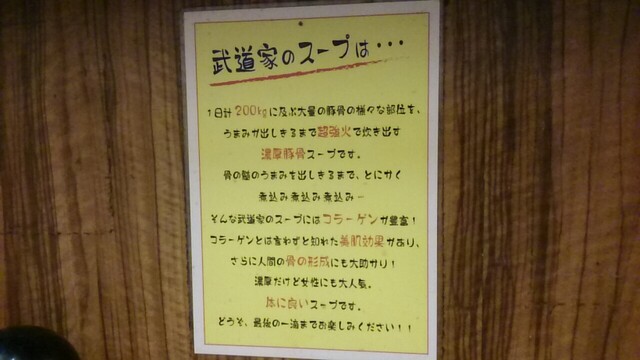 武道家のスープは・・・
1日計200kgに及ぶ大量の豚骨の様々な部位を、
うまみが出しきるまで超強火で炊き出す
濃厚豚骨スープです。
骨の髄のうまみを出しきるまで、とにかく
煮込み煮込み煮込み…
そんな武道家のスープにはコラーゲンが豊富！
コラーゲンとは言わずと知れた美肌効果があり、
さらに人間の骨の形成にも大助かり！
濃厚だけど女性にも大人気。
体に良いスープです。
どうぞ、最後の一滴までお楽しみください！！